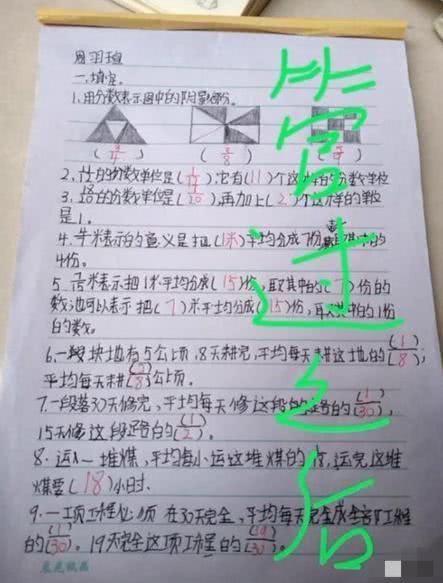 周羽瑄
一、填空。
1.用分数表示图中的阴影部份。
(3/4) (3/8) (5/9)
2. 的分数单位是( ),它有(11)个这样的分数单位
3. 的分数单位是( /20),再加上(2)个这样的单位
是1。
4. 米表示的意义是把(1米)平均分成7份,取其中的
4份。
5. 米表示把1米平均分成(15)份,取其中的(7)份的
数,也可以表示把(7)米平均分成(15)份,取其中的1份
的数。
6.一段块地有5公顷,8天耕完,平均每天耕这地的(1/8),
平均每天耕( /8)公顷。
7.一段落30天修完,平均每天修这段的路的(1/30),
15天修这段路的(1/2)。
8.运 一堆煤,平均每小运这堆煤的 ,运完这堆
煤要(18)小时.
9.一项工程必须在30天完全,平均每天完成全部工程
的(1/30)。19天完全这项工程的(19/30)。
营过之后